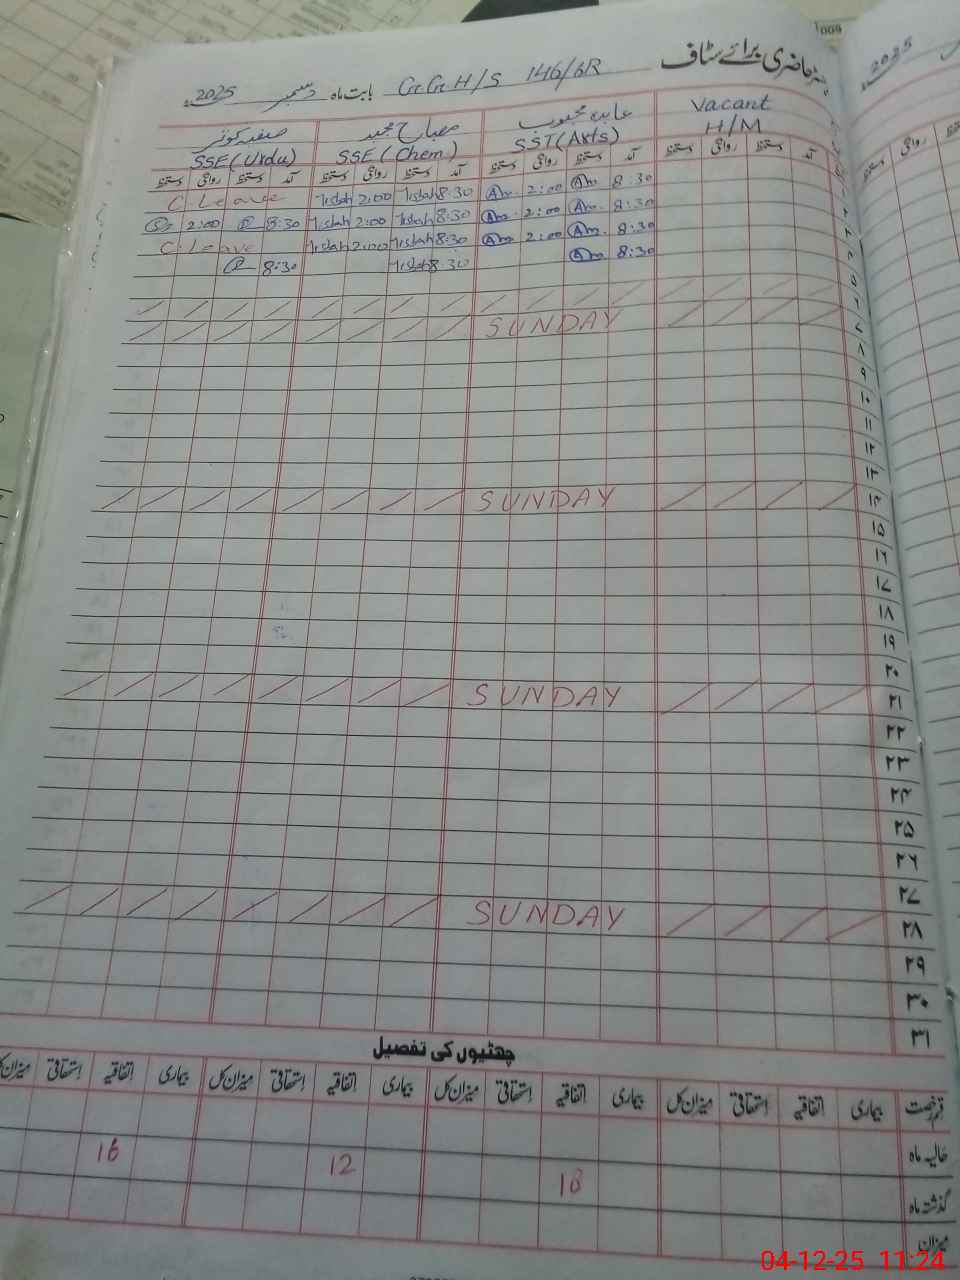 رجسٹر حاضری برائے سٹاف G.G.H/S 146/6R بابت ماہ دسمبر 2025ء
Vacant H/M
عابدہ محبوب SST(Arts)
مصباح مجید SSE(Chem)
صفیہ کوثر SSE(Urdu)
آمد دستخط روانگی دستخط آمد دستخط روانگی دستخط آمد دستخط روانگی دستخط آمد دستخط روانگی دستخط
C Leave Misbah 2:00 Misbah 8:30 Am 2:00 Am 8:30 ۱
2:00 8:30 Misbah 2:00 Misbah 8:30 Am 2:00 Am 8:30 ۲
C Leave Misbah 2:00 Misbah 8:30 Am 2:00 Am 8:30 ۳
8:30 Misbah 8:30 Am 8:30 ۴
۵
۶
SUNDAY ۷
۸
۹
۱۰
۱۱
۱۲
۱۳
SUNDAY ۱۴
۱۵
۱۶
۱۷
۱۸
۱۹
۲۰
SUNDAY ۲۱
۲۲
۲۳
۲۴
۲۵
۲۶
۲۷
SUNDAY ۲۸
۲۹
۳۰
۳۱
چھٹیوں کی تفصیل
قسم رخصت بیماری اتفاقیہ استحقاقی میزان کل بیماری اتفاقیہ استحقاقی میزان کل بیماری اتفاقیہ استحقاقی میزان کل بیماری اتفاقیہ استحقاقی میزان کل
حالیہ ماہ
گذشتہ ماہ 18 12 16
میزان
2025ء
روانگی
009
04-12-25 11:24